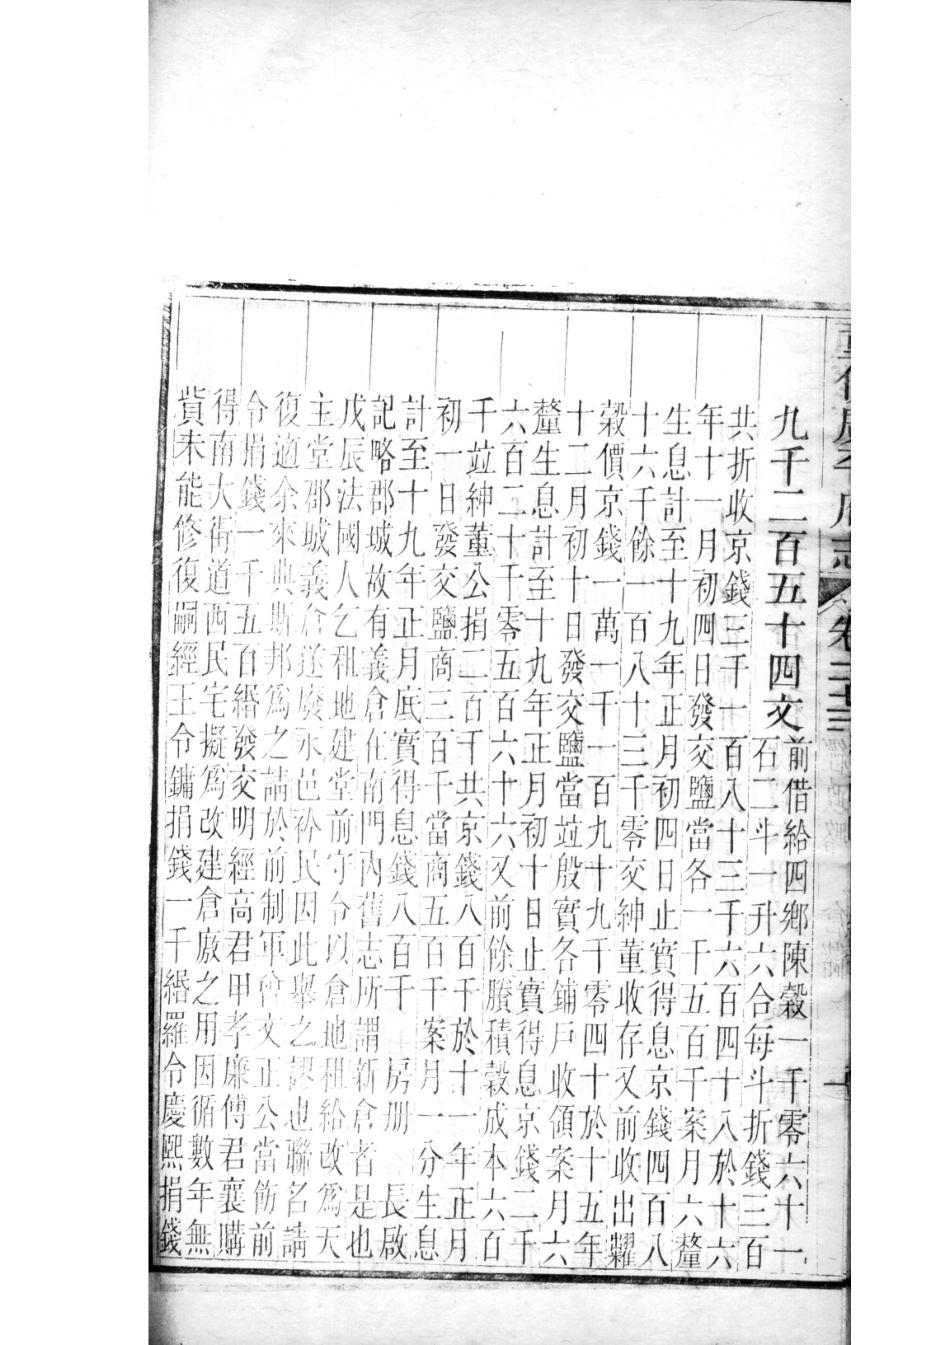 重修廣平府志 卷二十三 經政略 倉儲
九千二百五十四文
前借給四鄉陳穀一千零六十一
石二斗一升六合每斗折錢三百
共折收京錢三千一百八十三千六百四十八於十六
年十一月初四日發交鹽當各一千五百千案月六釐
生息計至十九年正月初四日止實得息京錢四百八
十六千餘一百八十三千零交紳董收存又前收出糶
穀價京錢一萬一千一百九十九千零四十於十五年
十二月初十日發交鹽當竝殷實各鋪戶收領案月六
釐生息計至十九年正月初十日止實得息京錢二千
六百二十千零五百六十六又前餘賸積穀成本六百
千竝紳董公捐二百千共京錢八百千於十一年正月
初一日發交鹽商三百千當商五百千案月一分生息
計至十九年正月底實得息錢八百千 房冊 長啟
記略郡城故有義倉在南門內舊志所謂新倉者是也
戊辰法國人乞租地建堂前守令以倉地租給改爲天
主堂郡城義倉遂廢永邑衿民因此舉之謬也聯名請
復適余來典斯邦爲之請於前制軍曾文正公當飭前
令捐錢一千五百緡發交明經高君甲孝廉傅君襄購
得南大街道西民宅擬爲改建倉廒之用因循數年無
貲未能修復嗣經王令鏞捐錢一千緡羅令慶熙捐錢